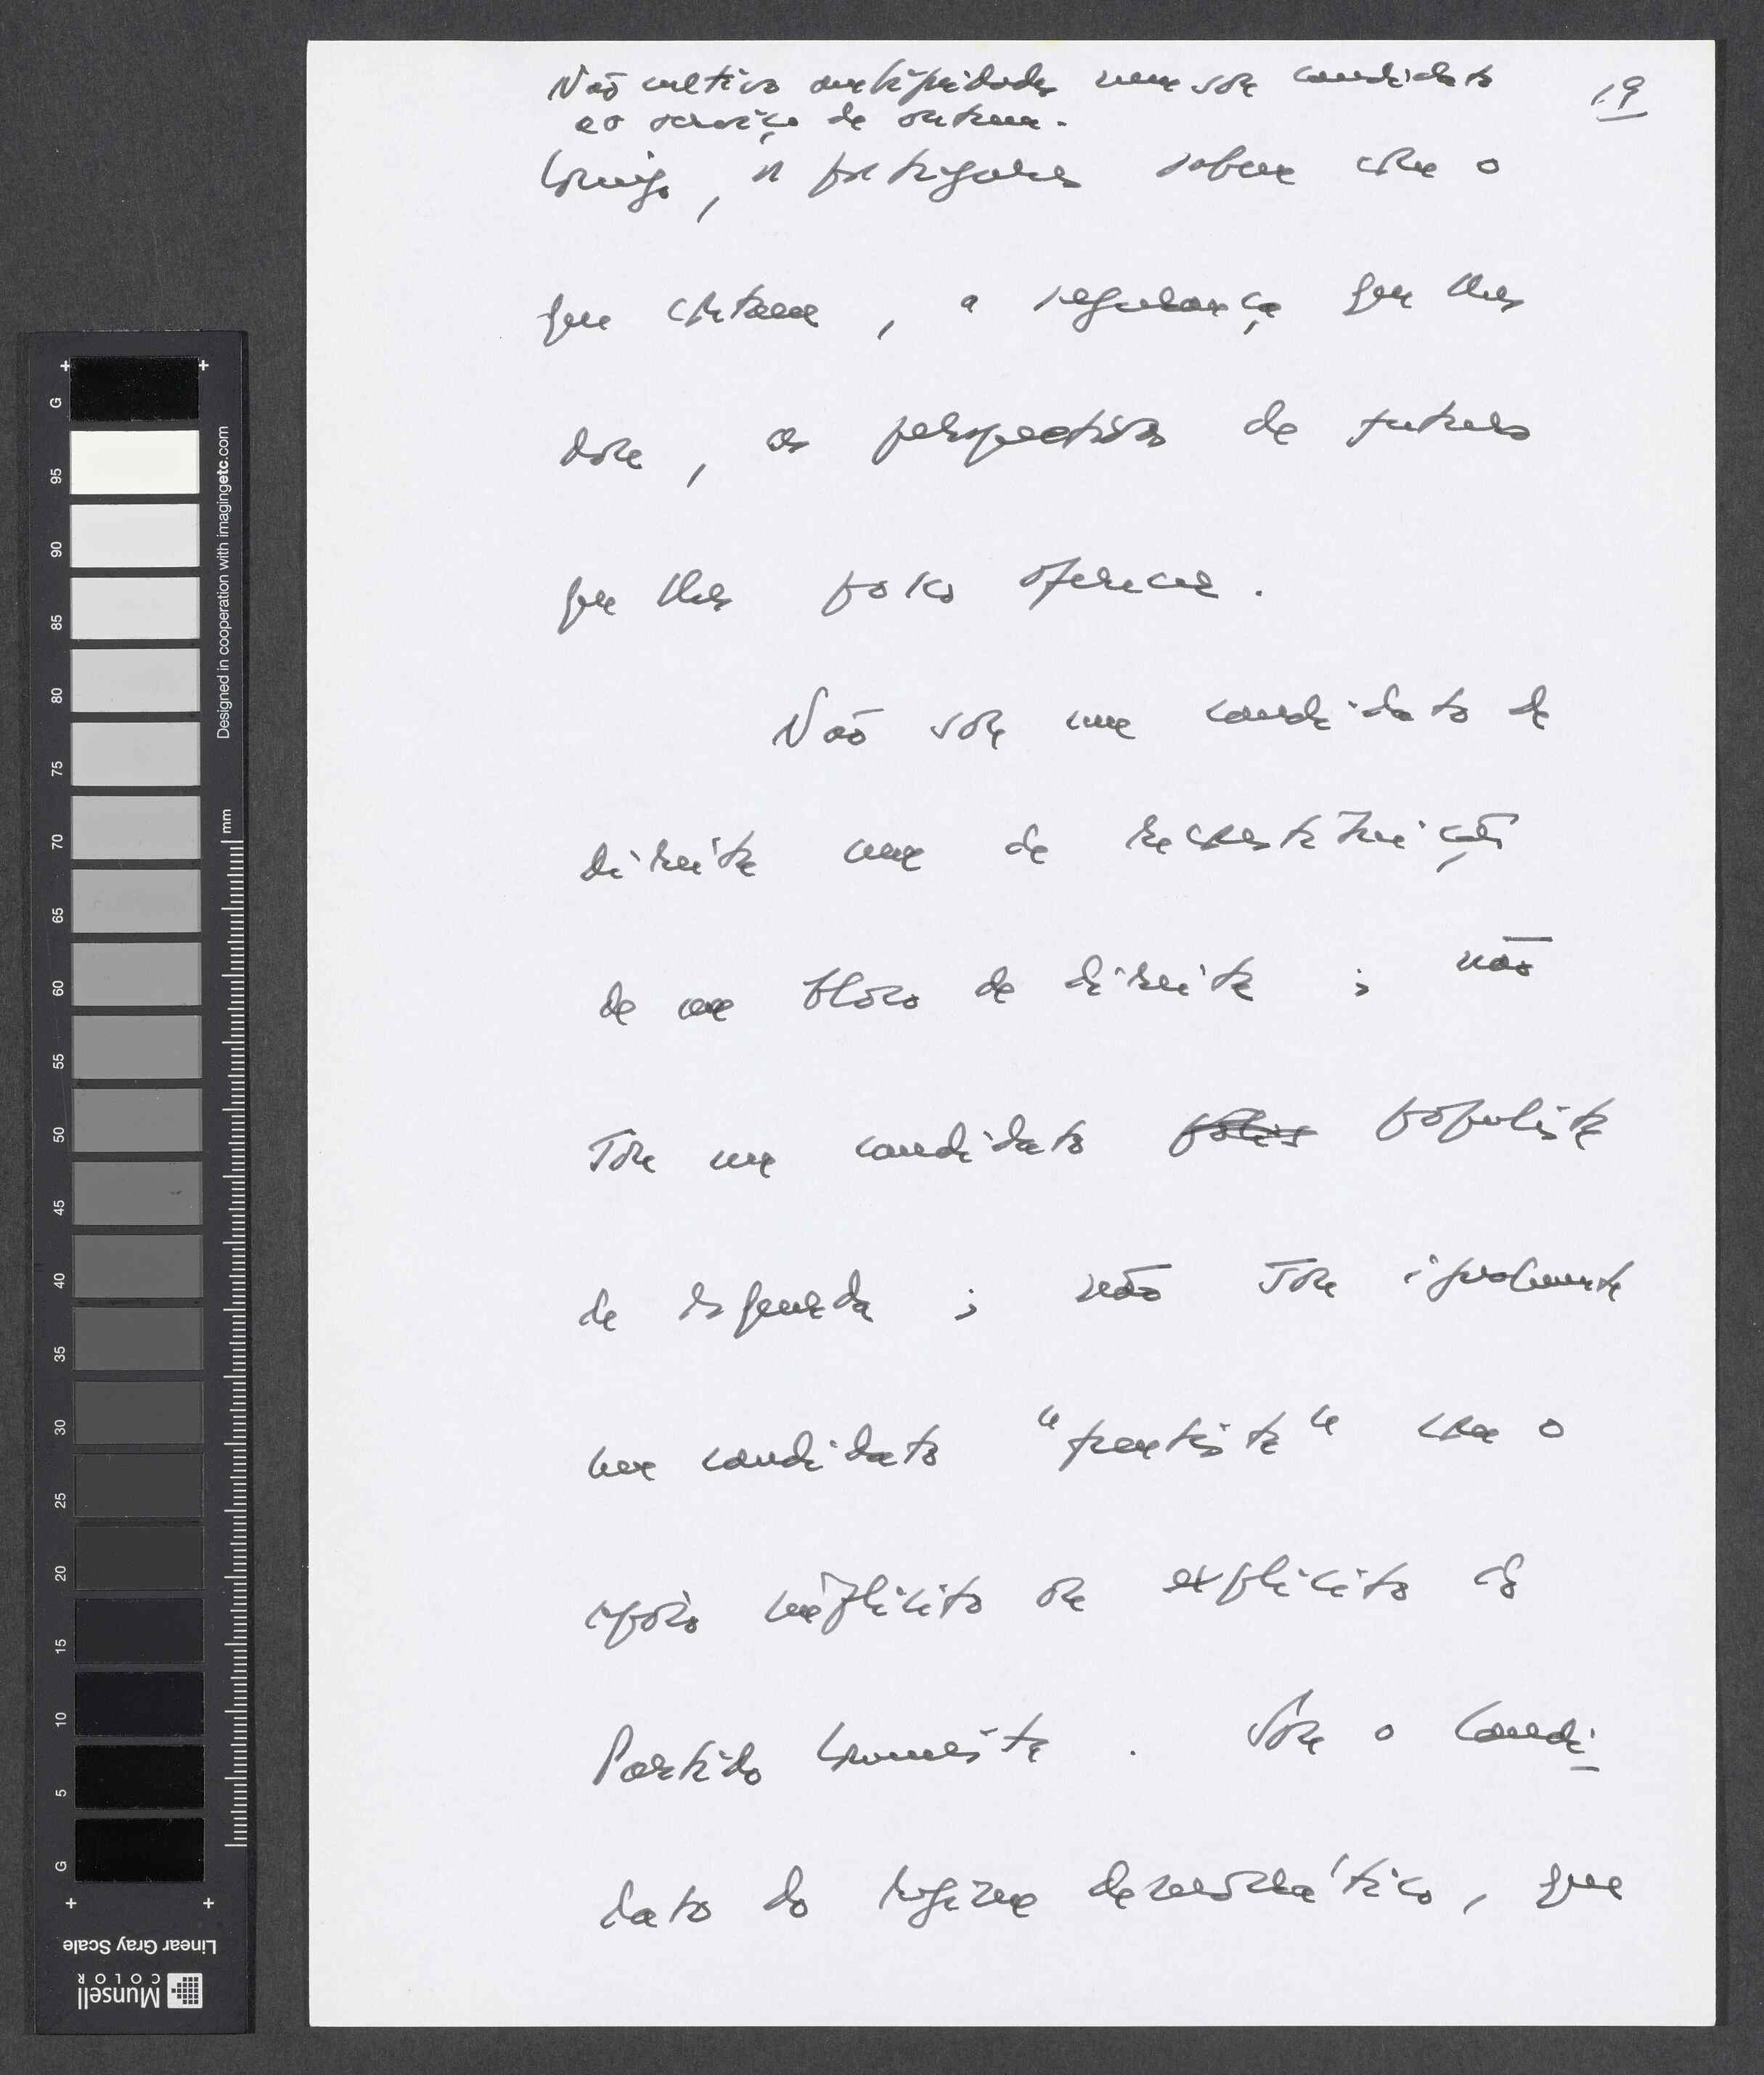 Não cultivo ambiguidades nem sou candidato
ao serviço de outrem.
19
Comigo, os portugueses sabem com o
que contam, a segurança que lhes
dou, as perspectivas de futuro
que lhes posso oferecer.
Não sou um candidato de
direita nem de reconstituição
de um bloco de direita; não
sou um candidato populista
de esquerda; não sou igualmente
um candidato "frentista" com o
apoio implícito ou explícito do
Partido Comunista. Sou o candi-
dato do regime democrático, que
G 95 90 85 80 75 70 65 60 55 50 45 40 35 30 25 20 15 10 5 G
Designed in cooperation with imagingetc.com
mm
Linear Gray Scale
Munsell
COLOR